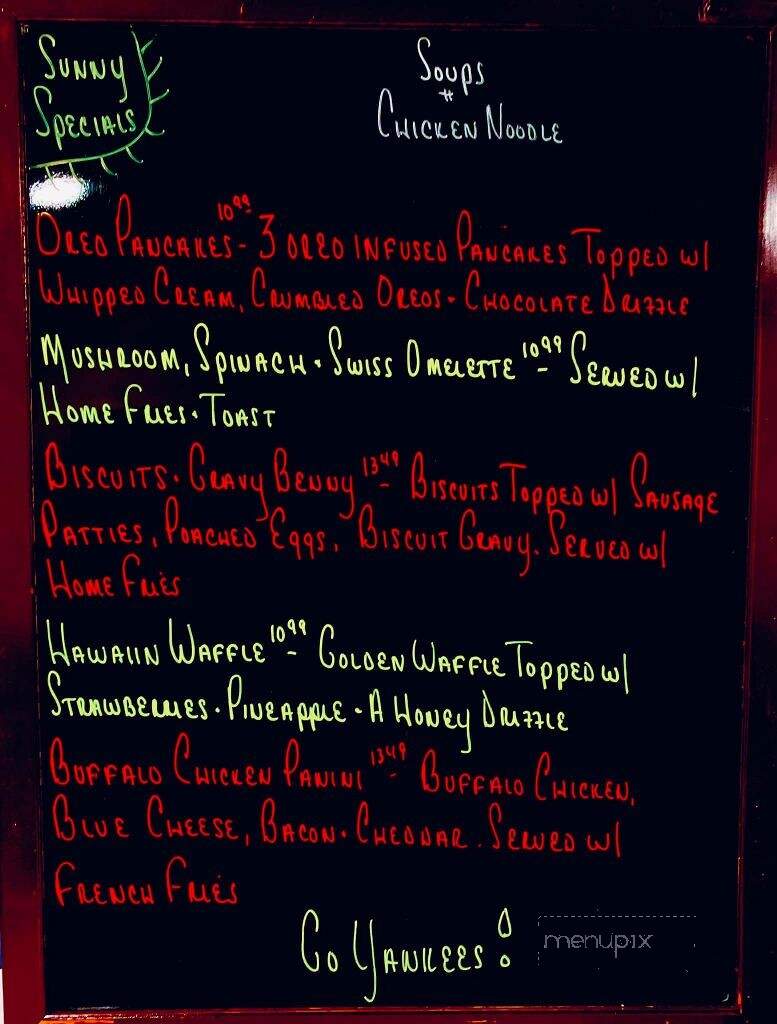 Sunny
Specials
Soups
#
Chicken Noodle
10.99
Oreo Pancakes - 3 oreo infused Pancakes Topped w/
Whipped Cream, Crumbled Oreos - Chocolate Drizzle
Mushroom, Spinach - Swiss Omelette 10.99 - Served w/
Home Fries - Toast
Biscuits - Gravy Benny 13.49 - Biscuits Topped w/ Sausage
Patties, Poached Eggs, Biscuit Gravy. Served w/
Home Fries
Hawaiin Waffle 10.99 - Golden Waffle Topped w/
Strawberries - Pineapple - A Honey Drizzle
Buffalo Chicken Panini 13.49 - Buffalo Chicken,
Blue Cheese, Bacon - Cheddar. Served w/
French Fries
Go Yankees!
menupix